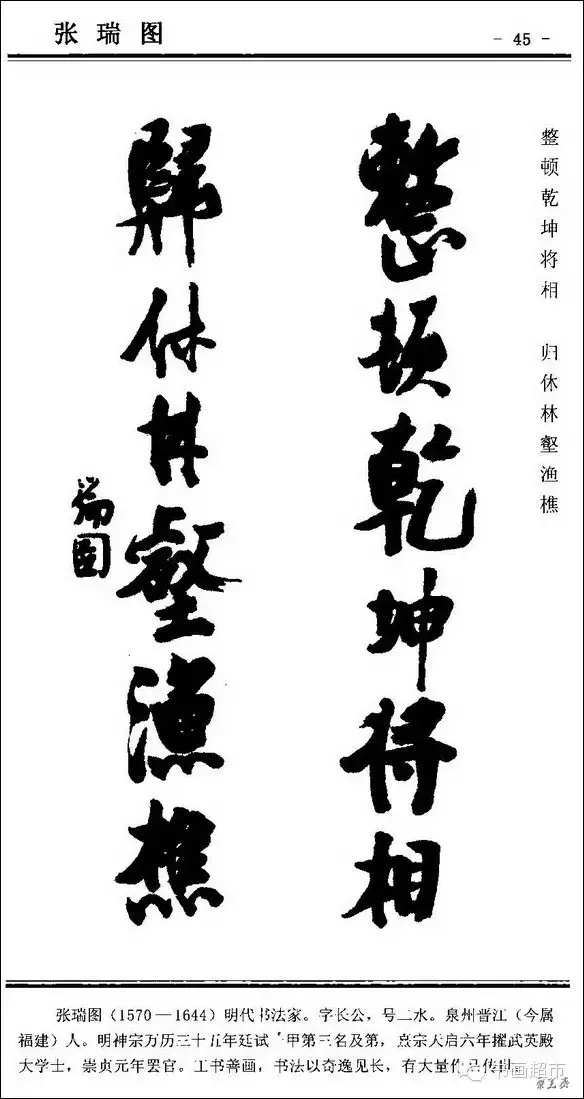 张瑞图
- 45 -
整顿乾坤将相 归休林壑渔樵
整頓乾坤将相
歸休林壑漁樵
瑞图
张瑞图（1570—1644）明代书法家。字长公，号二水。泉州晋江（今属
福建）人。明神宗万历三十五年廷试一甲第三名及第，熹宗天启六年擢武英殿
大学士，崇贞元年罢官。工书善画，书法以奇逸见长，有大量作品传世。
书画超市